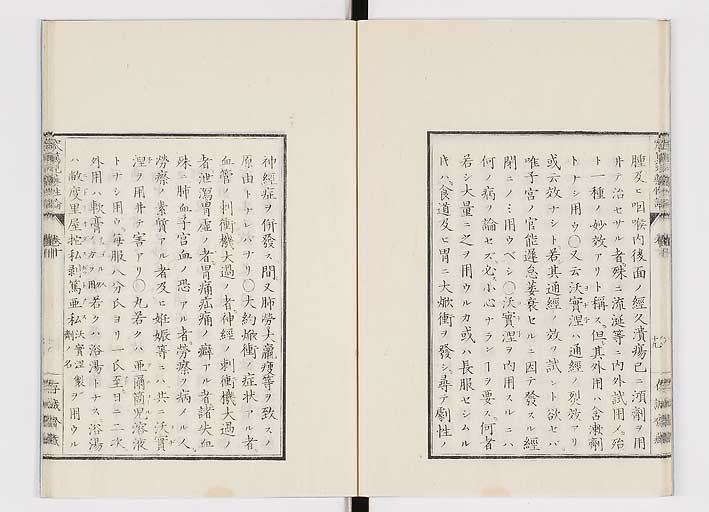 腫及ヒ咽喉内後面ノ經久潰瘍已ニ澒劑ヲ用
井テ治セサル者殊ニ流涎等ニ内外試用ノ殆
ト一種ノ妙效アリト稱ス但其外用ハ含漱劑
トナシ用ウ〇又云沃實涅ハ通經ノ烈效アリ
或云效ナシト若其通經ノ效ヲ試シト欲セハ
唯子宮ノ官能遲怠萎衰セルニ因テ發スル經
閉ニノミ用ウベシ〇沃實涅ヲ内用スルニハ
何ノ病ヲ論セズ必ス小心ナランヿヲ要ス何者
若シ大量ニ之ヲ用ウルカ或ハ長服セシムル
片ハ食道及ヒ胃ニ大焮衝ヲ發シ尋テ劇性ノ
神經症ヲ併發ス間又肺勞大羸痩等ヲ致スノ
原由トナレバナリ〇大約焮衝ノ症状アル者
血管ノ刺衝機大過ノ者神經ノ刺衝機大過ノ
者泄瀉胃虚ノ者胃痛疝痛ノ癖アル者諸失血
殊ニ肺血子宮血ノ恐アル者勞瘵ヲ病ノル人
勞瘵ノ素質アル者及ヒ妊娠等ニハ共ニ沃實
涅ヲ用井テ害アリ〇丸若クハ亜爾箇兒溶液
トナシ用ウ毎服八分氏ヨリ一氏至日ニ二次
外用ハ軟膏ノ方ヲ用ル若クハ浴湯トナス浴湯
ハ歇度里屋抡私剥篤亜私沃實涅製劑ノ名ヲ用ウル
卷廿
存誠齋藏